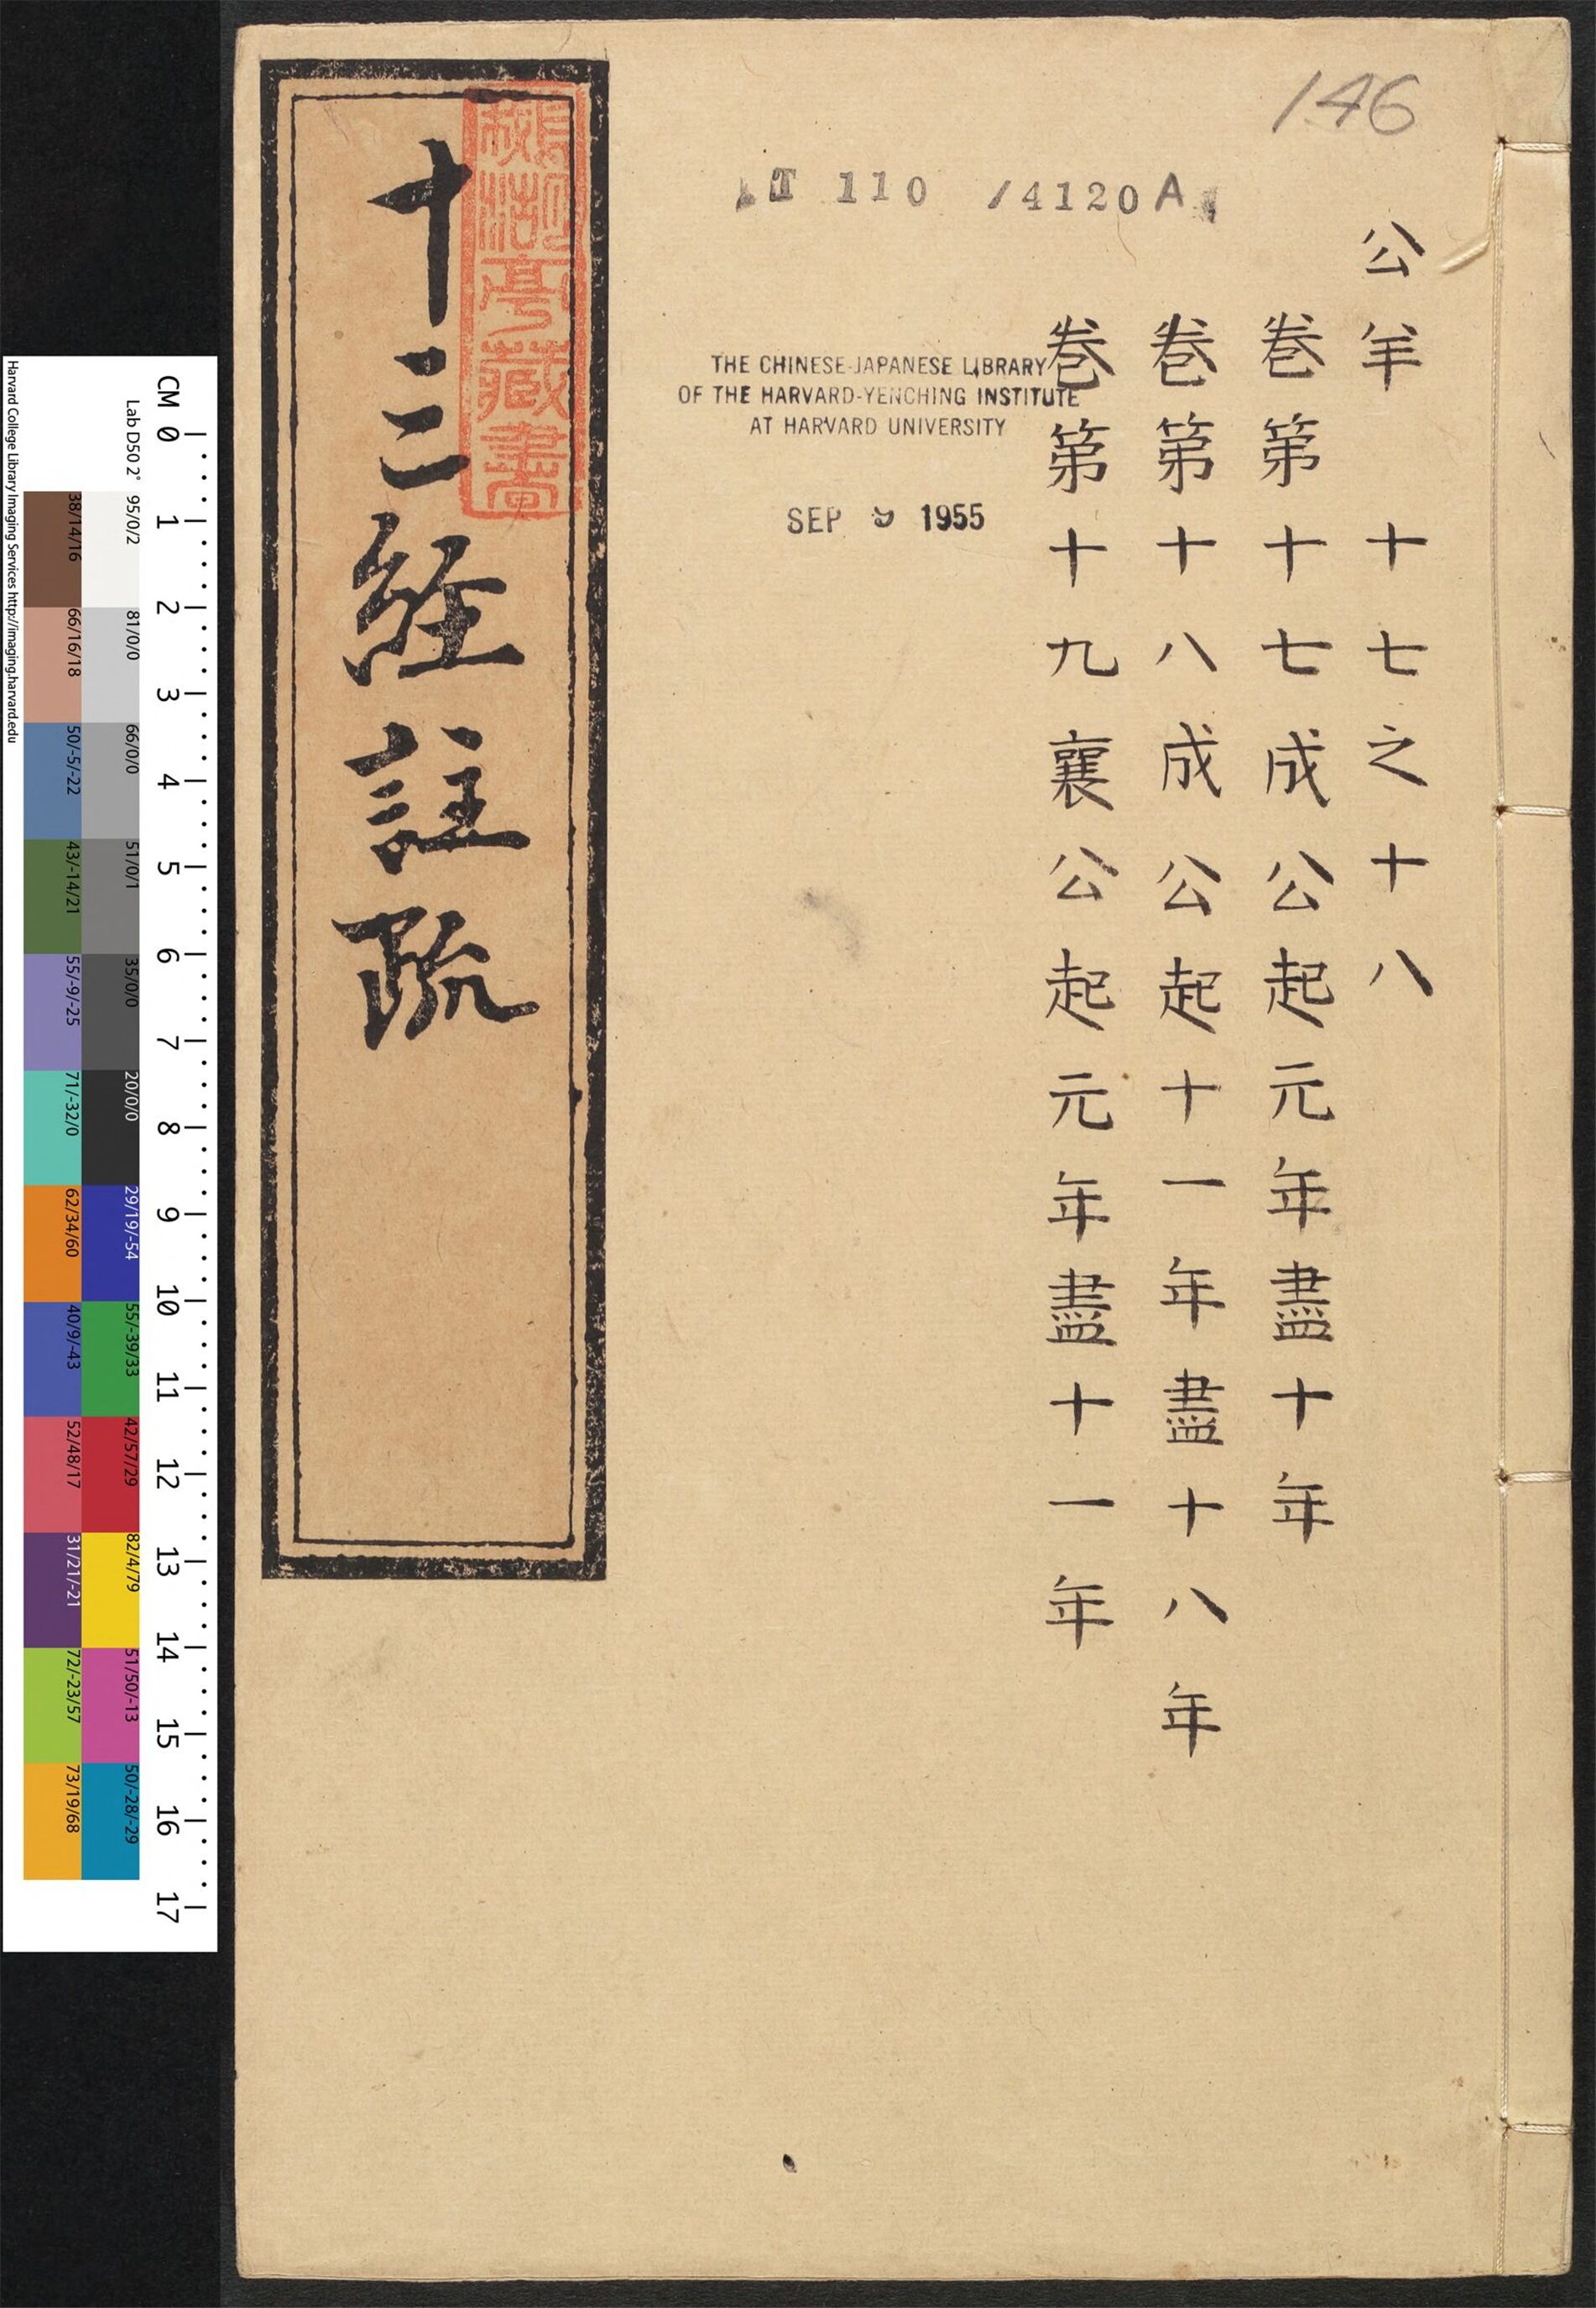 146
T 110 /4120 A
公羊 十七之十八
卷第十七成公起元年盡十年
卷第十八成公起十一年盡十八年
卷第十九襄公起元年盡十一年
THE CHINESE-JAPANESE LIBRARY
OF THE HARVARD-YENCHING INSTITUTE
AT HARVARD UNIVERSITY
SEP 9 1955
十三経註疏
亭藏書
CM 0 1 2 3 4 5 6 7 8 9 10 11 12 13 14 15 16 17
Lab D50 2° 95/0/2 81/0/0 66/0/0 51/0/1 35/0/0 20/0/0 29/19/-54 55/-39/33 42/57/29 82/4/79 51/50/-13 50/-28/-29
38/14/16 66/16/18 50/-5/-22 43/-14/21 55/-9/-25 71/-32/0 62/34/60 40/9/-43 52/48/17 31/21/-21 72/-23/57 73/19/68
Harvard College Library Imaging Services http://imaging.harvard.edu